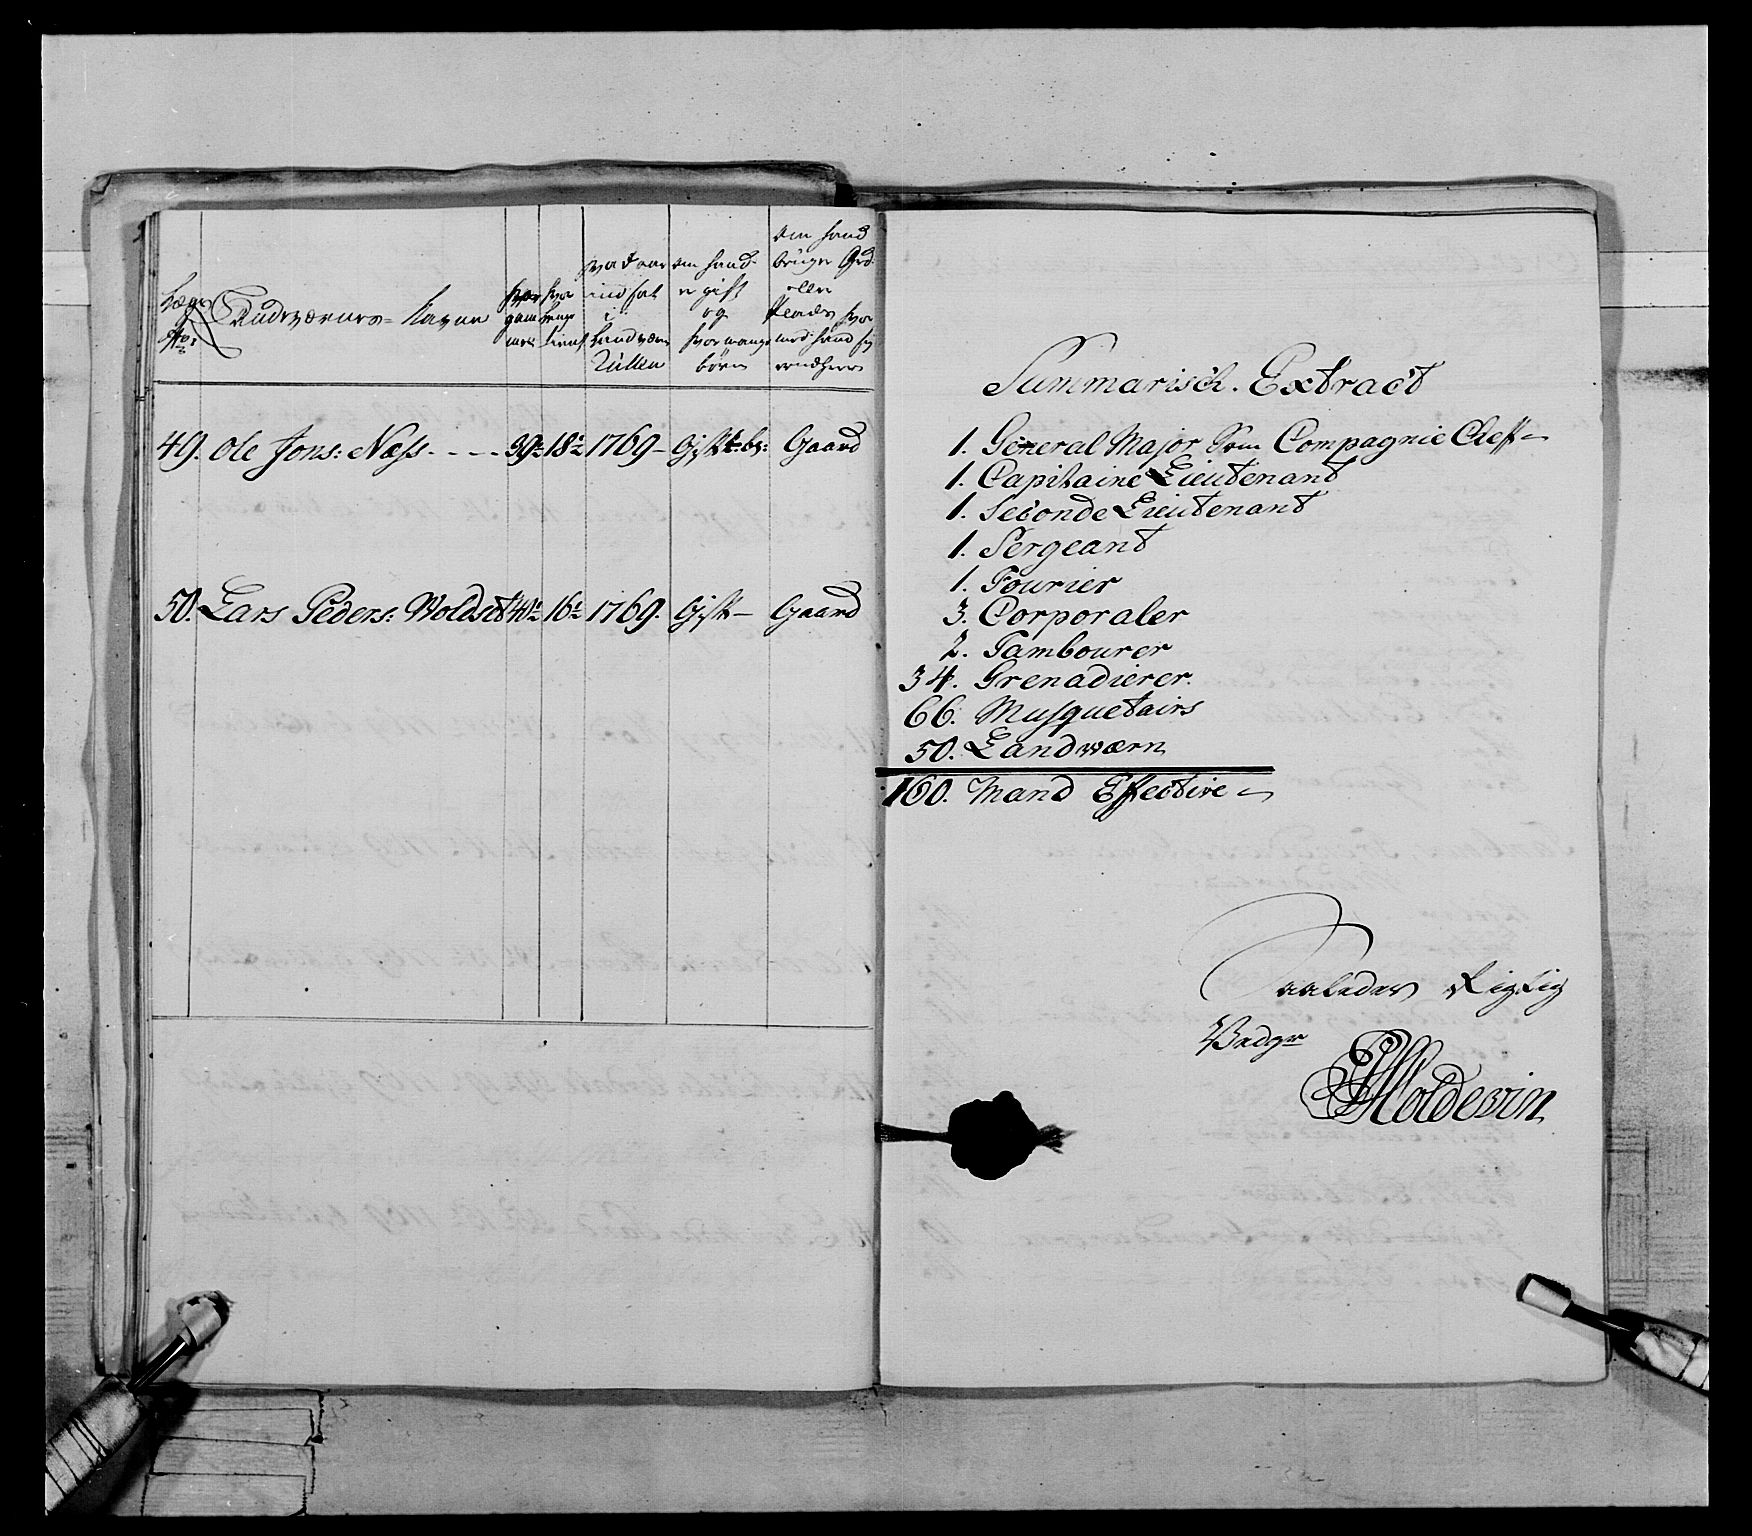 Lægs No:
Landværnes Navne
hvor gammel
hvor længe tient
hvad aar indsat i Landværn Rullen
om hand er gift og hvor mange børn
om hand bruger Grd. eller Plads hvor med hand sig ernæhrer
49. Ole Jons: Næss - - - - 39 18 1769 - Gift br: Gaard
50. Lars Peders: Woldset 41 16 1769. Gift - Gaard
Summarisch. Extract
1. General Major Som Compagnie Chef
1. Capitaine Lieutenant
1. Seconde Lieutenant
1. Sergeant
1. Fourier
3. Corporaler
2. Tambourer
34. Grenadierer.
66. Musquetairs
50. Landværn
160. Mand Effective
Saaledes Rigtig
Holdevin